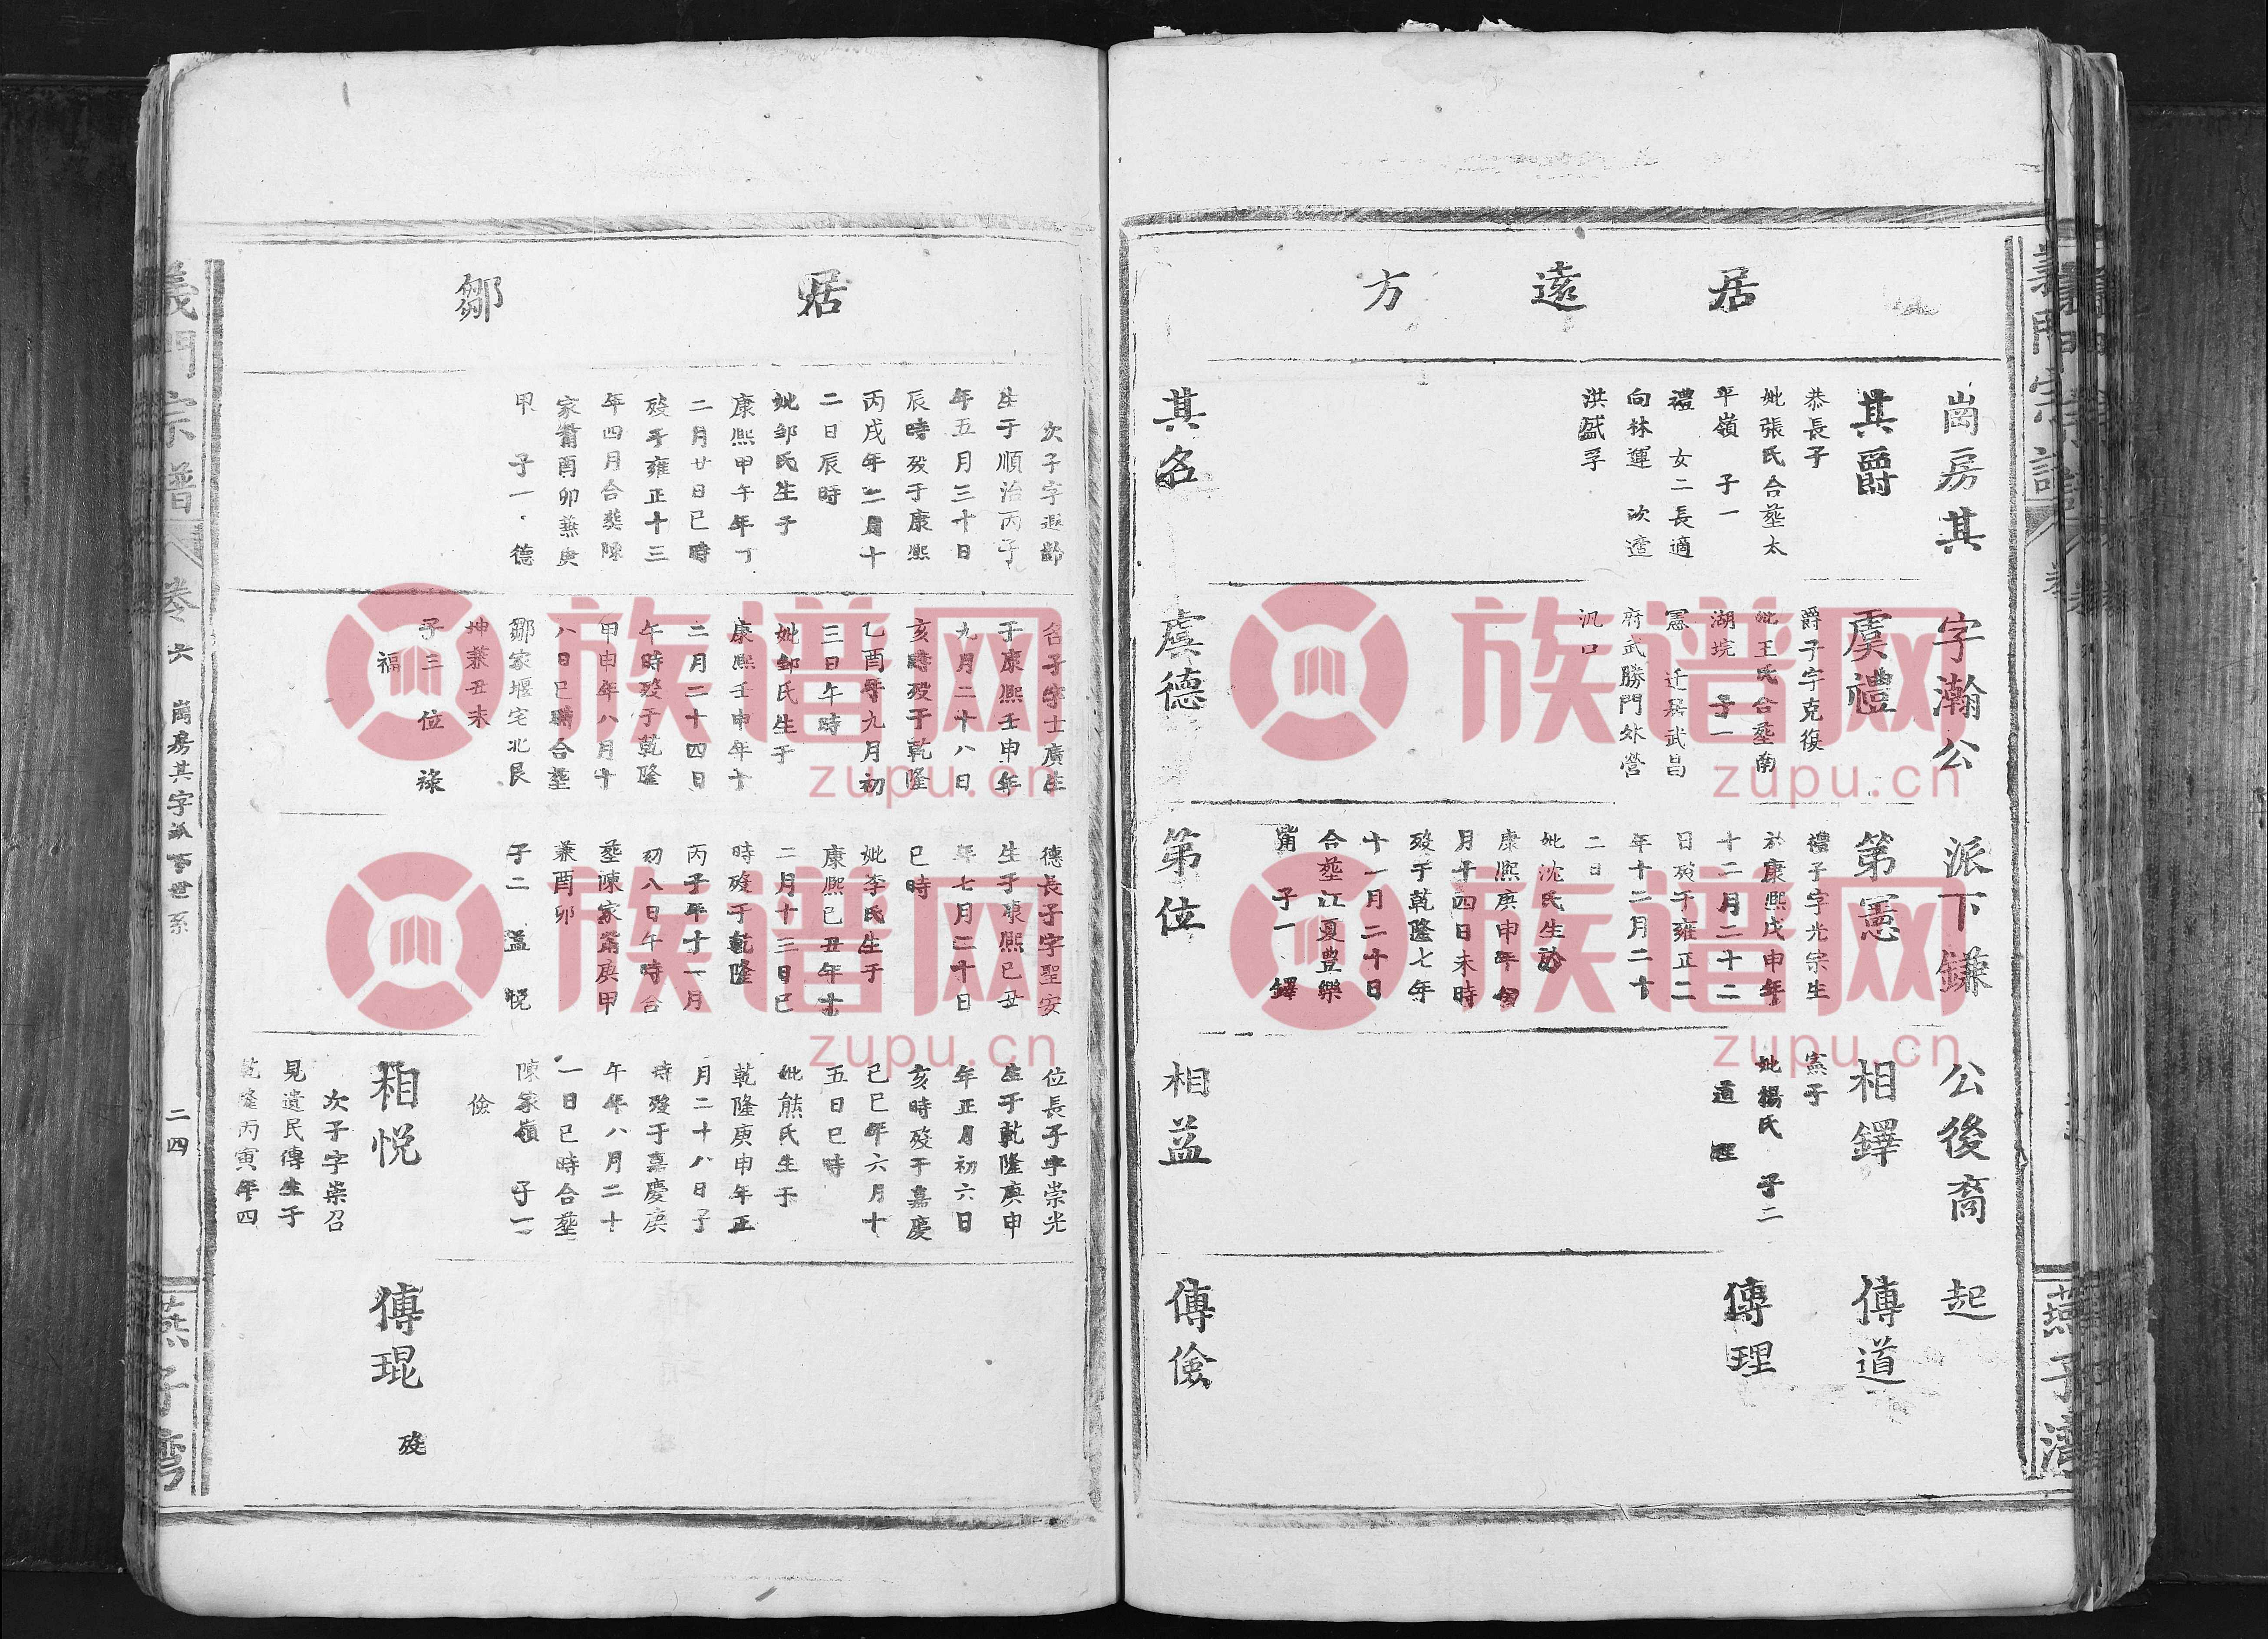 義門宗譜
燕子灣
居遠方
崗房其字瀚公派下鎌公後裔起
其爵
恭長子
妣張氏合塟太
平嶺 子一
禮 女二長適
向林運 次適
洪盛孚
虞禮
爵子字克復
妣王氏合塟南
湖垸 子一
憲 迁居武昌
府武勝門外營
汛口
第憲
禮子字光宗生
於康熙戊申年
十二月二十二
日殁于雍正二
年十二月二十
二日
妣沈氏生於
康熙庚申年
月十四日未時
殁于乾隆七年
十一月二十日
合塟江夏豊樂
子一 鐸
相鐸
憲子
妣楊氏 子二
道 理
傳道
傳理
其名
虞德
第位
相益
傳儉
居鄒
次子字遐齡
生于順治丙子
年五月三十日
辰時殁于康熙
丙戌年二月十
二日辰時
妣邹氏生于
康熙甲午年丁
二月廿日巳時
殁于雍正十三
年四月合塟陳
家嘴酉卯兼庚
甲 子一 德
名子字士廣生
于康熙壬申年
九月二十八日
亥時殁于乾隆
乙酉年九月初
三日午時
妣邹氏生于
康熙壬申年十
二月二十四日
午時殁于乾隆
甲申年八月十
八日巳時合塟
鄒家堰宅北艮
坤兼丑未
子三 位 祿
福
德長子字聖安
生于康熙己丑
年七月二十日
巳時
妣李氏生于
康熙己丑年十
二月十三日巳
時殁于乾隆
丙子年十一月
初八日午時合
塟陳家嘴庚甲
兼酉卯
子二 益 悦
位長子字崇光
生于乾隆庚申
年正月初六日
亥時殁于嘉慶
己巳年六月十
五日巳時
妣熊氏生于
乾隆庚申年正
月二十八日子
時殁于嘉慶庚
午年八月二十
一日巳時合塟
陳家嶺 子一
儉
相悦
次子字崇召
見遺民傳生于
乾隆丙寅年四
傳琨 殁
義門宗譜
卷六
崗房其字派下世系
二四
燕子灣
族谱网
zupu.cn
族谱网
zupu.cn
族谱网
zupu.cn
族谱网
zupu.cn